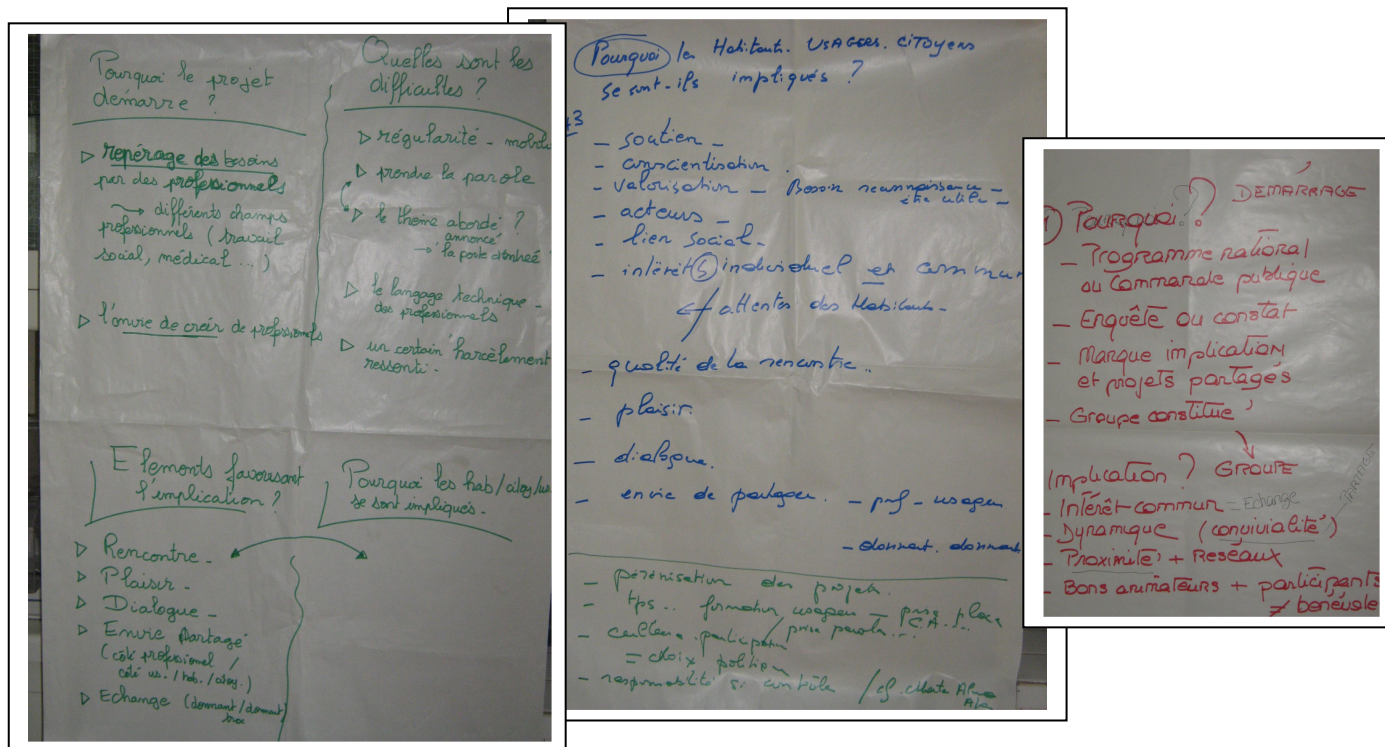 Pourquoi le projet
démarre ?
▷ repérage des besoins
par des professionnels
→ différents champs
professionnels (travail
social, médical ...)
▷ l'envie de créer de professionnels
Quelles sont les
difficultés ?
▷ régularité - mobilité
▷ prendre la parole
▷ le thème abordé ?
annoncé
→ la porte d'entrée
▷ le langage technique -
des professionnels
▷ un certain harcèlement
ressenti -
Elements favorisant
l'implication ?
▷ Rencontre -
▷ Plaisir -
▷ Dialogue -
▷ Envie partagé
(côté professionnel /
côté us. / hab. / citoy.)
▷ Echange (donnant/donnant)
troc
Pourquoi les hab/citoy/us
se sont impliqués -
Pourquoi les Habitants. USAGERS. CITOYENS
se sont-ils impliqués ?
- soutien -
- conscientisation .
- valorisation - Besoin reconnaissance -
être utile -
- acteurs -
- lien social -
- intérêt(s) individuel et commun
attentes des Habitants -
- qualité de la rencontre ..
- plaisir.
- dialogue.
- envie de partager. - prof - usagers
- donnant. donnant
- pérénisation des projets.
- tps .. formation usagers - place
/ prise parole ... C.A. ...
- culture participation
= choix politique
- responsabilité / cf. charte
DÉMARRAGE
1) Pourquoi ?
- Programme national
ou commande publique
- Enquête ou constat
- Manque implication
et projets partagés
- Groupe constitué
Implication ? GROUPE
- Intérêt commun = Echange
- Dynamique (convivialité) - PARTAGE
- Proximité + Réseaux
- Bons animateurs + participants
≠ bénévole